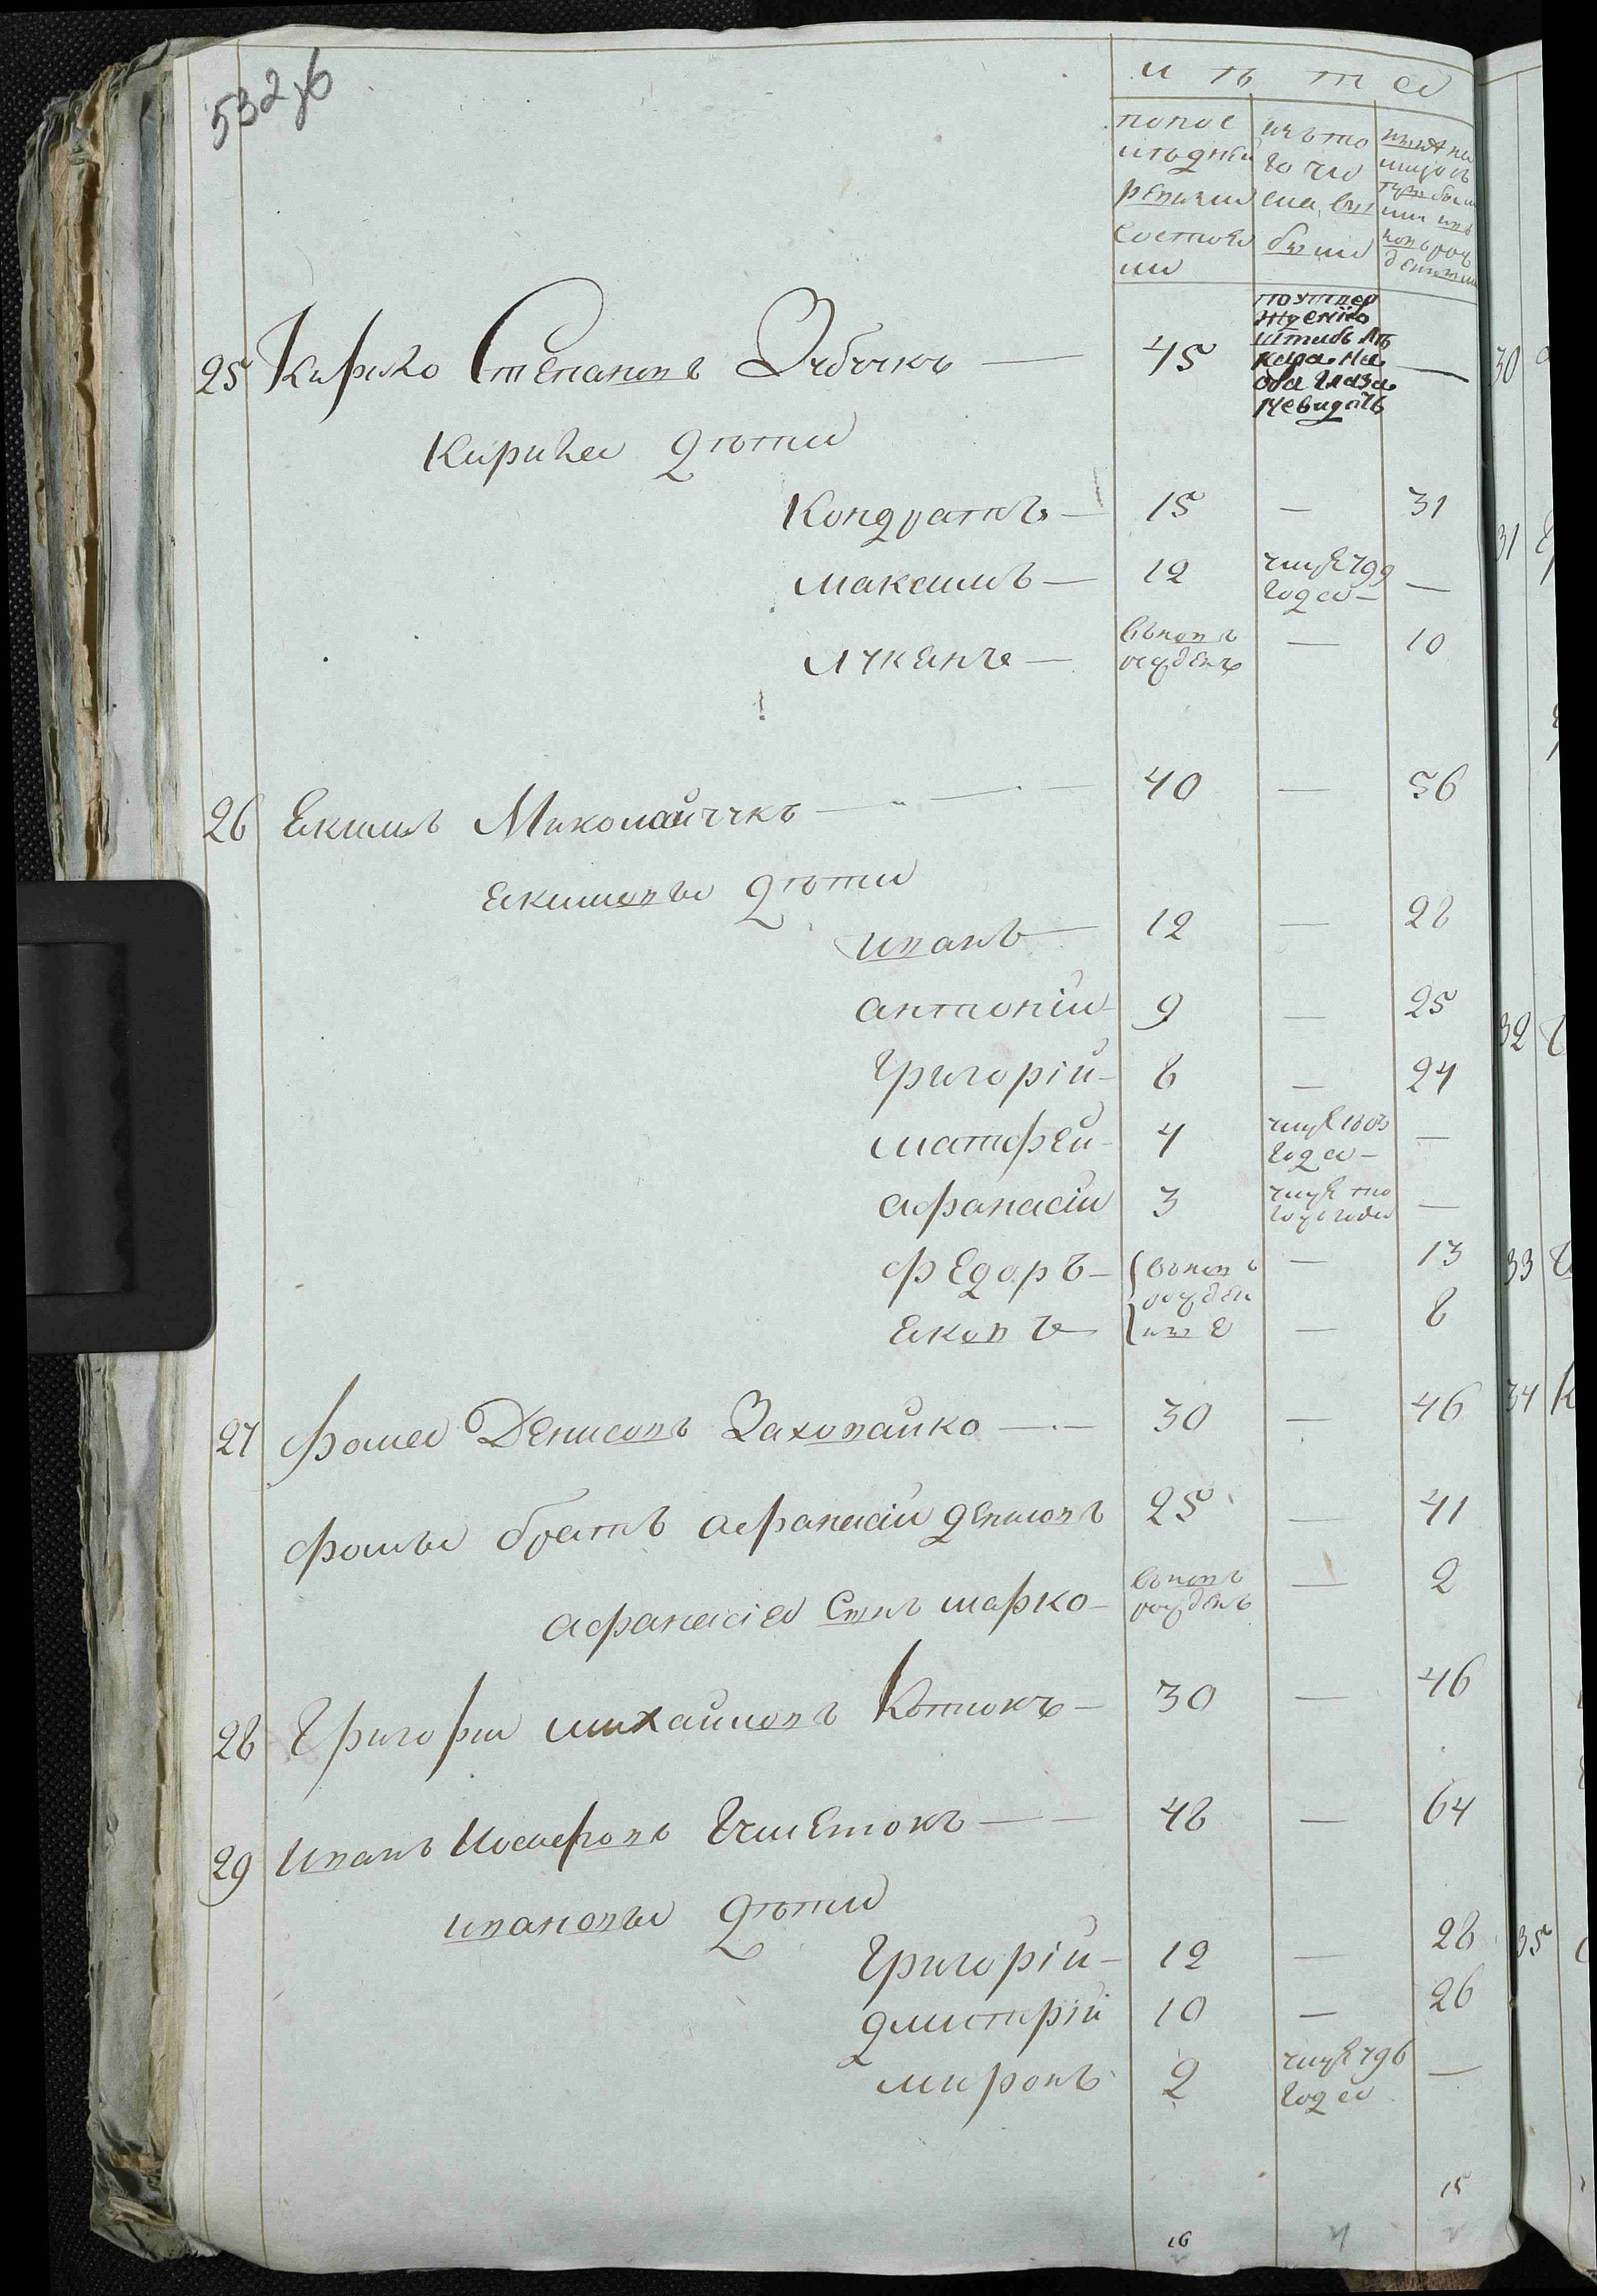 532об
и ѣ т а
по пос
лѣдней
ревизии
состоя
ли
изъ то
го чи
сла вы
было
25 Кирило Степановъ Зубчикъ — 45 —
по утвер
ждению
штабъ лѣ
каря на
оба глаза
не видитъ
Кирила дѣти
Кондратъ — 15 — 31
Максимъ — 12 умре 799 —
года —
Лукаянъ — вновь — 10
рожденъ
26 Екимъ Миколайчукъ — 40 — 56
Екимовы дѣти
Иванъ — 12 — 28
Антоній 9 — 25
Григорій — 8 — 24
Матфей — 4 умре 1803 —
года —
Афанасій 3 умре то —
гожъ года
Федоръ — вновь — 13
рожден
Яковъ — ные — 8
27 Фома Денисовъ Заховайко — 30 — 46
Фомы братъ Афанасій Денисовъ 25 — 41
Афанасія сынъ Марко — вновь — 2
рожденъ
28 Григори Михайловъ Котюкъ — 30 — 46
29 Иванъ Иосифовъ — 48 — 64
Ивановы дѣти
Григорій — 12 — 28
Дмитрій 10 — 26
Миронъ 2 умре 796 —
года
15
16 4
30
31
32
33
34
35